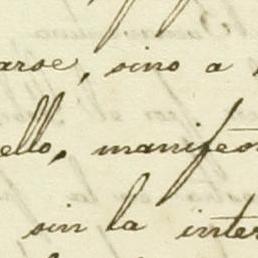 arse, sino a
ello, manifes
sin la inter